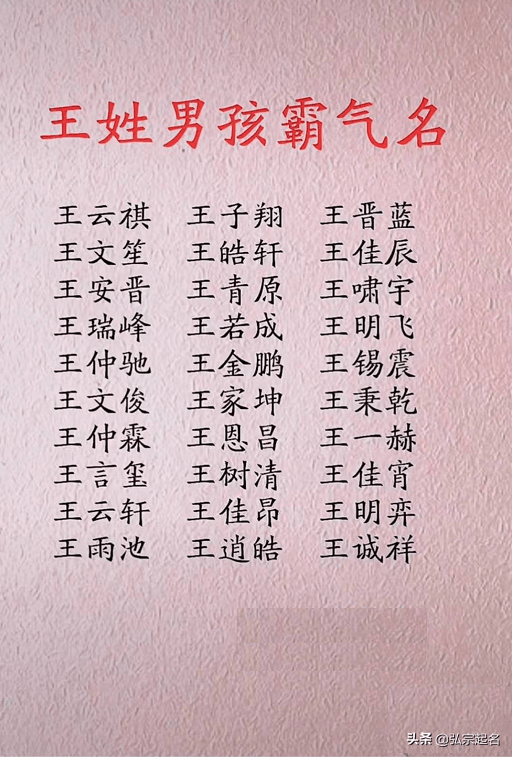 王姓男孩霸气名
王云祺 王子翔 王晋蓝
王文笙 王皓轩 王佳辰
王安晋 王青原 王啸宇
王瑞峰 王若成 王明飞
王仲驰 王金鹏 王锡震
王文俊 王家坤 王秉乾
王仲霖 王恩昌 王一赫
王言玺 王树清 王佳宵
王云轩 王佳昂 王明弈
王雨池 王逍皓 王诚祥
头条 @弘宗起名